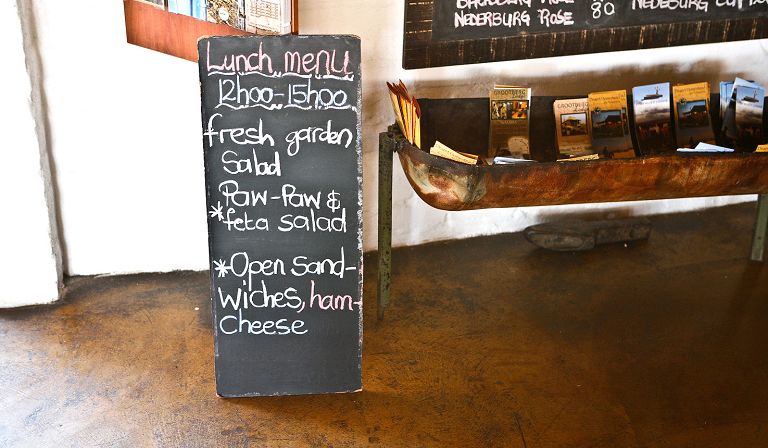 Lunch menu
12h00-15h00
fresh garden
Salad
Paw-Paw &
*feta salad
*Open sand-
wiches, ham-
Cheese
NEDERBURG ROSE 80
GROOTBERG
GROOTBERG